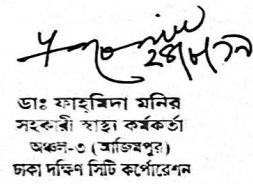 ২৪/৮/১৭
ডাঃ ফাহমিদা মনির
সহকারী স্বাস্থ্য কর্মকর্তা
অঞ্চল-৩ (আজিমপুর)
ঢাকা দক্ষিণ সিটি কর্পোরেশন